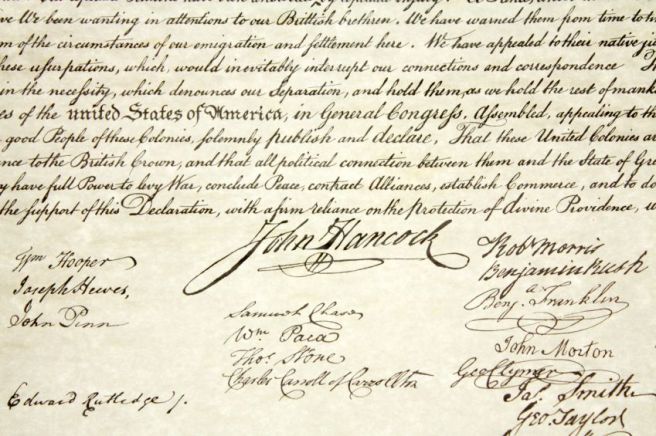 ve We been wanting in attentions to our Brittish brethren. We have warned them from time to
m of the circumstances of our emigration and settlement here. We have appealed to their native
hese usurpations, which, would inevitably interrupt our connections and correspondence
in the necessity, which denounces our Separation, and hold them, as we hold the rest of mank
es of the united States of America, in General Congress, Assembled, appealing to the
good People of these Colonies, solemnly publish and declare, That these United Colonies
ance to the British Crown, and that all political connection between them and the State of Gre
y have full Power to levy War, conclude Peace, contract Alliances, establish Commerce, and to do
the support of this Declaration, with a firm reliance on the Protection of divine Providence,
John Hancock
Wm Hooper
Joseph Hewes,
John Penn
Edward Rutledge /.
Samuel Chase
Wm. Paca
Thos. Stone
Charles Carroll of Carrollton
Robt Morris
Benjamin Rush
Benja. Franklin
John Morton
Geo Clymer
Jas. Smith
Geo. Taylor